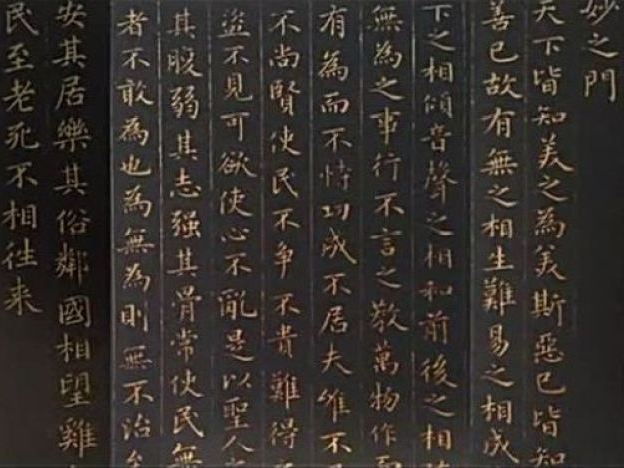 妙之門
天下皆知美之為美斯惡已皆知
善已故有無之相生難易之相成
下之相傾音聲之相和前後之相
無為之事行不言之教萬物作而
有為而不恃功成不居夫惟不
不尚賢使民不争不貴難得
盜不見可欲使心不亂是以聖人
其腹弱其志强其骨常使民無
者不敢為也為無為則無不治
安其居樂其俗鄰國相望雞
民至老死不相往来